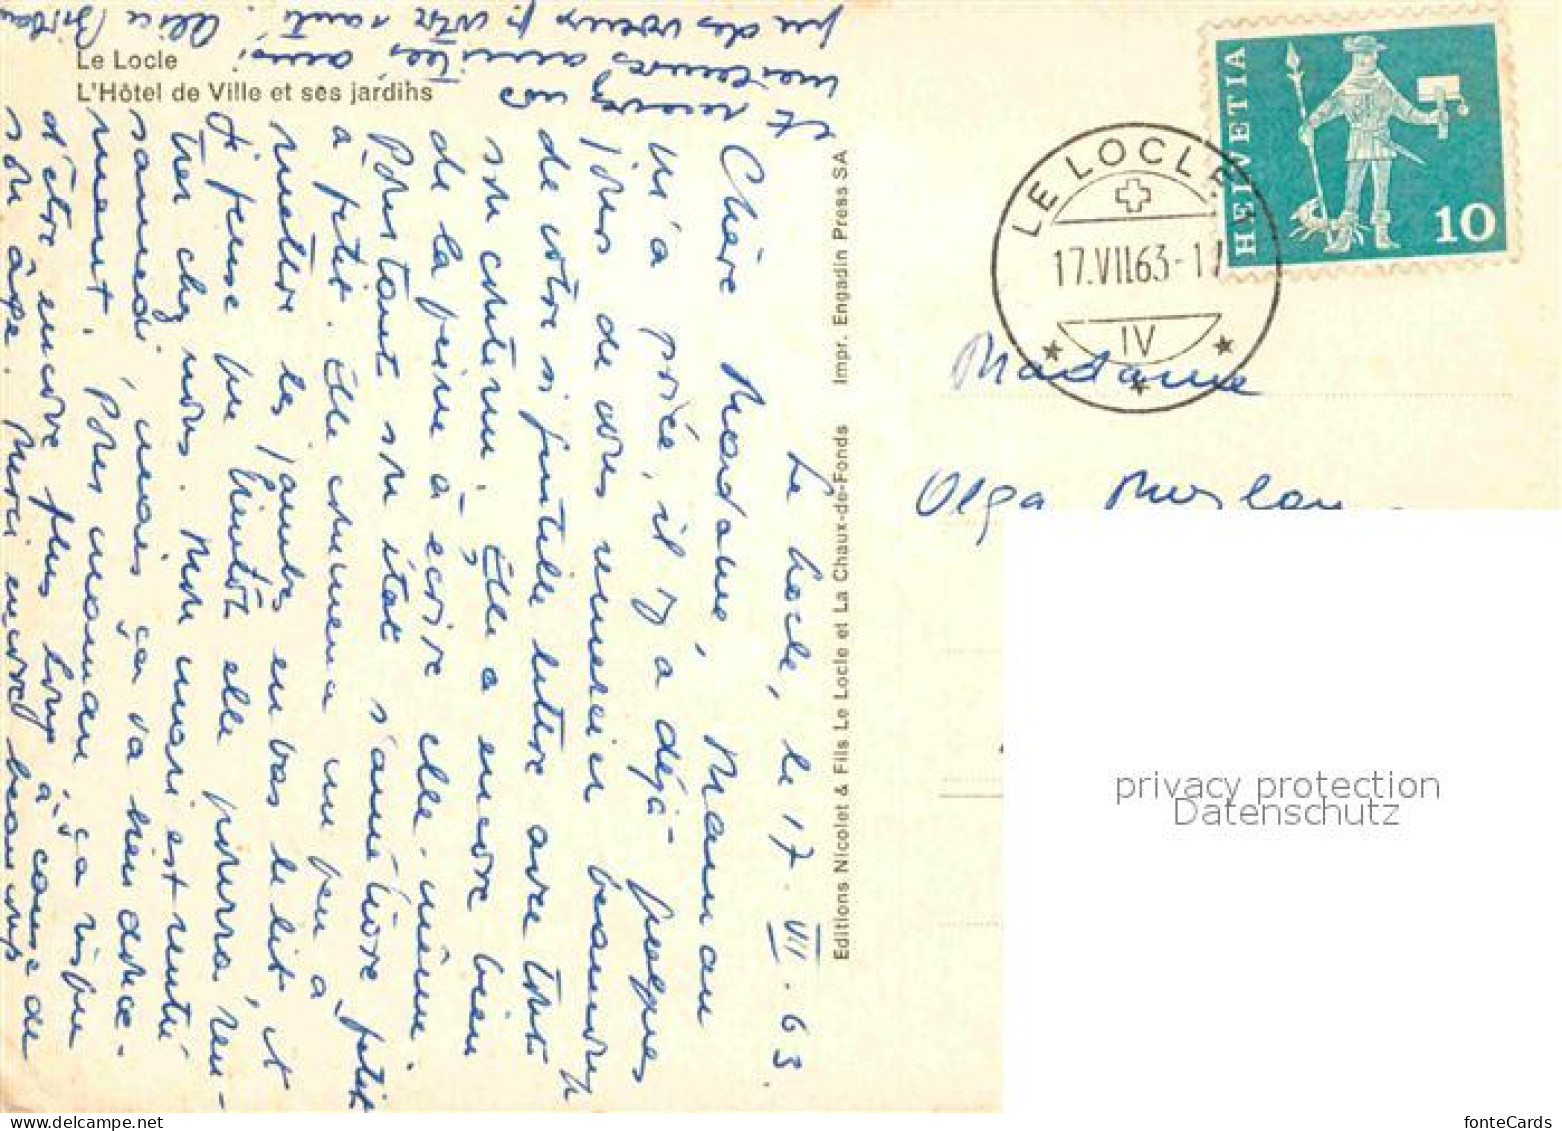 Le Locle
L'Hôtel de Ville et ses jardins
Le Locle, le 17. VII. 63.
Chère Madame, Maman
m'a priée, il y a déjà quelques
jours de vous remercier beaucoup
de votre si gentille lettre avec tout
son contenu. Elle a encore bien
de la peine à écrire elle-même.
Pourtant son état s'améliore petit
à petit. Elle commence un peu à
mettre les jambes en bas le lit, et
je pense que bientôt elle pourra ren-
trer chez nous. Mon mari est rentré
samedi, mais ça va bien douce-
ment. Pour maman ça risque
d'être encore plus long, à cause de
son âge. Merci encore beaucoup
et recevez nos
meilleures amitiés, ainsi
que des voeux p. votre santé. Alice
Editions Nicolet & Fils Le Locle et La Chaux-de-Fonds Impr. Engadin Press SA
HELVETIA
10
LE LOCLE
17.VII.63-1
IV
Madame
Olga
privacy protection
Datenschutz
fonteCards